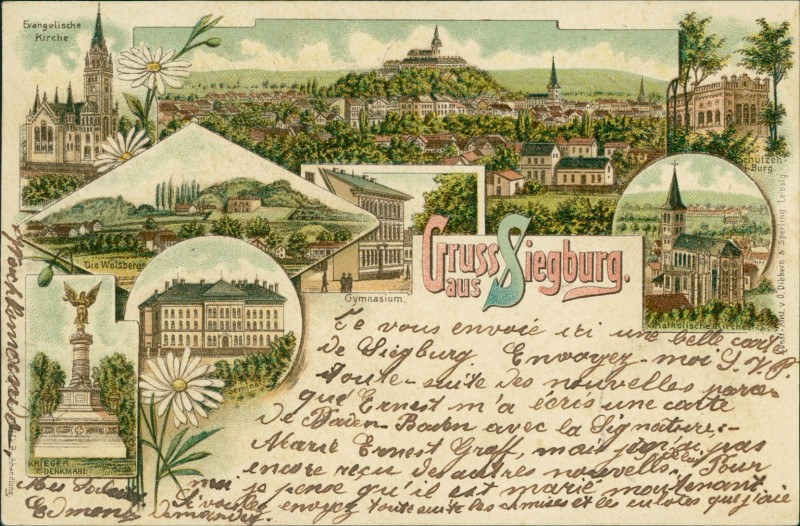 Evangelische
Kirche
Schützen-
Burg.
Die Wolsberge
Gymnasium.
Gruss
aus
Siegburg.
Katholische Kirche
Seminar
KRIEGER
DENKMAHL
Je vous envoie ici une belle cart
de Siegburg Envoyez-moi S.V.P.
toute-suite des nouvelles, parce-
que Ernest m'a écris une carte
de Baden-Baden avec la Signature:-
Marié Ernest Graff, mais je n'ai pas
encore reçu des autres nouvelles. Pour
moi je pense qu'il est marié maintenant
Si voulez envoyez toute suite les et les culotes que j'aie
demandez.
Edmond